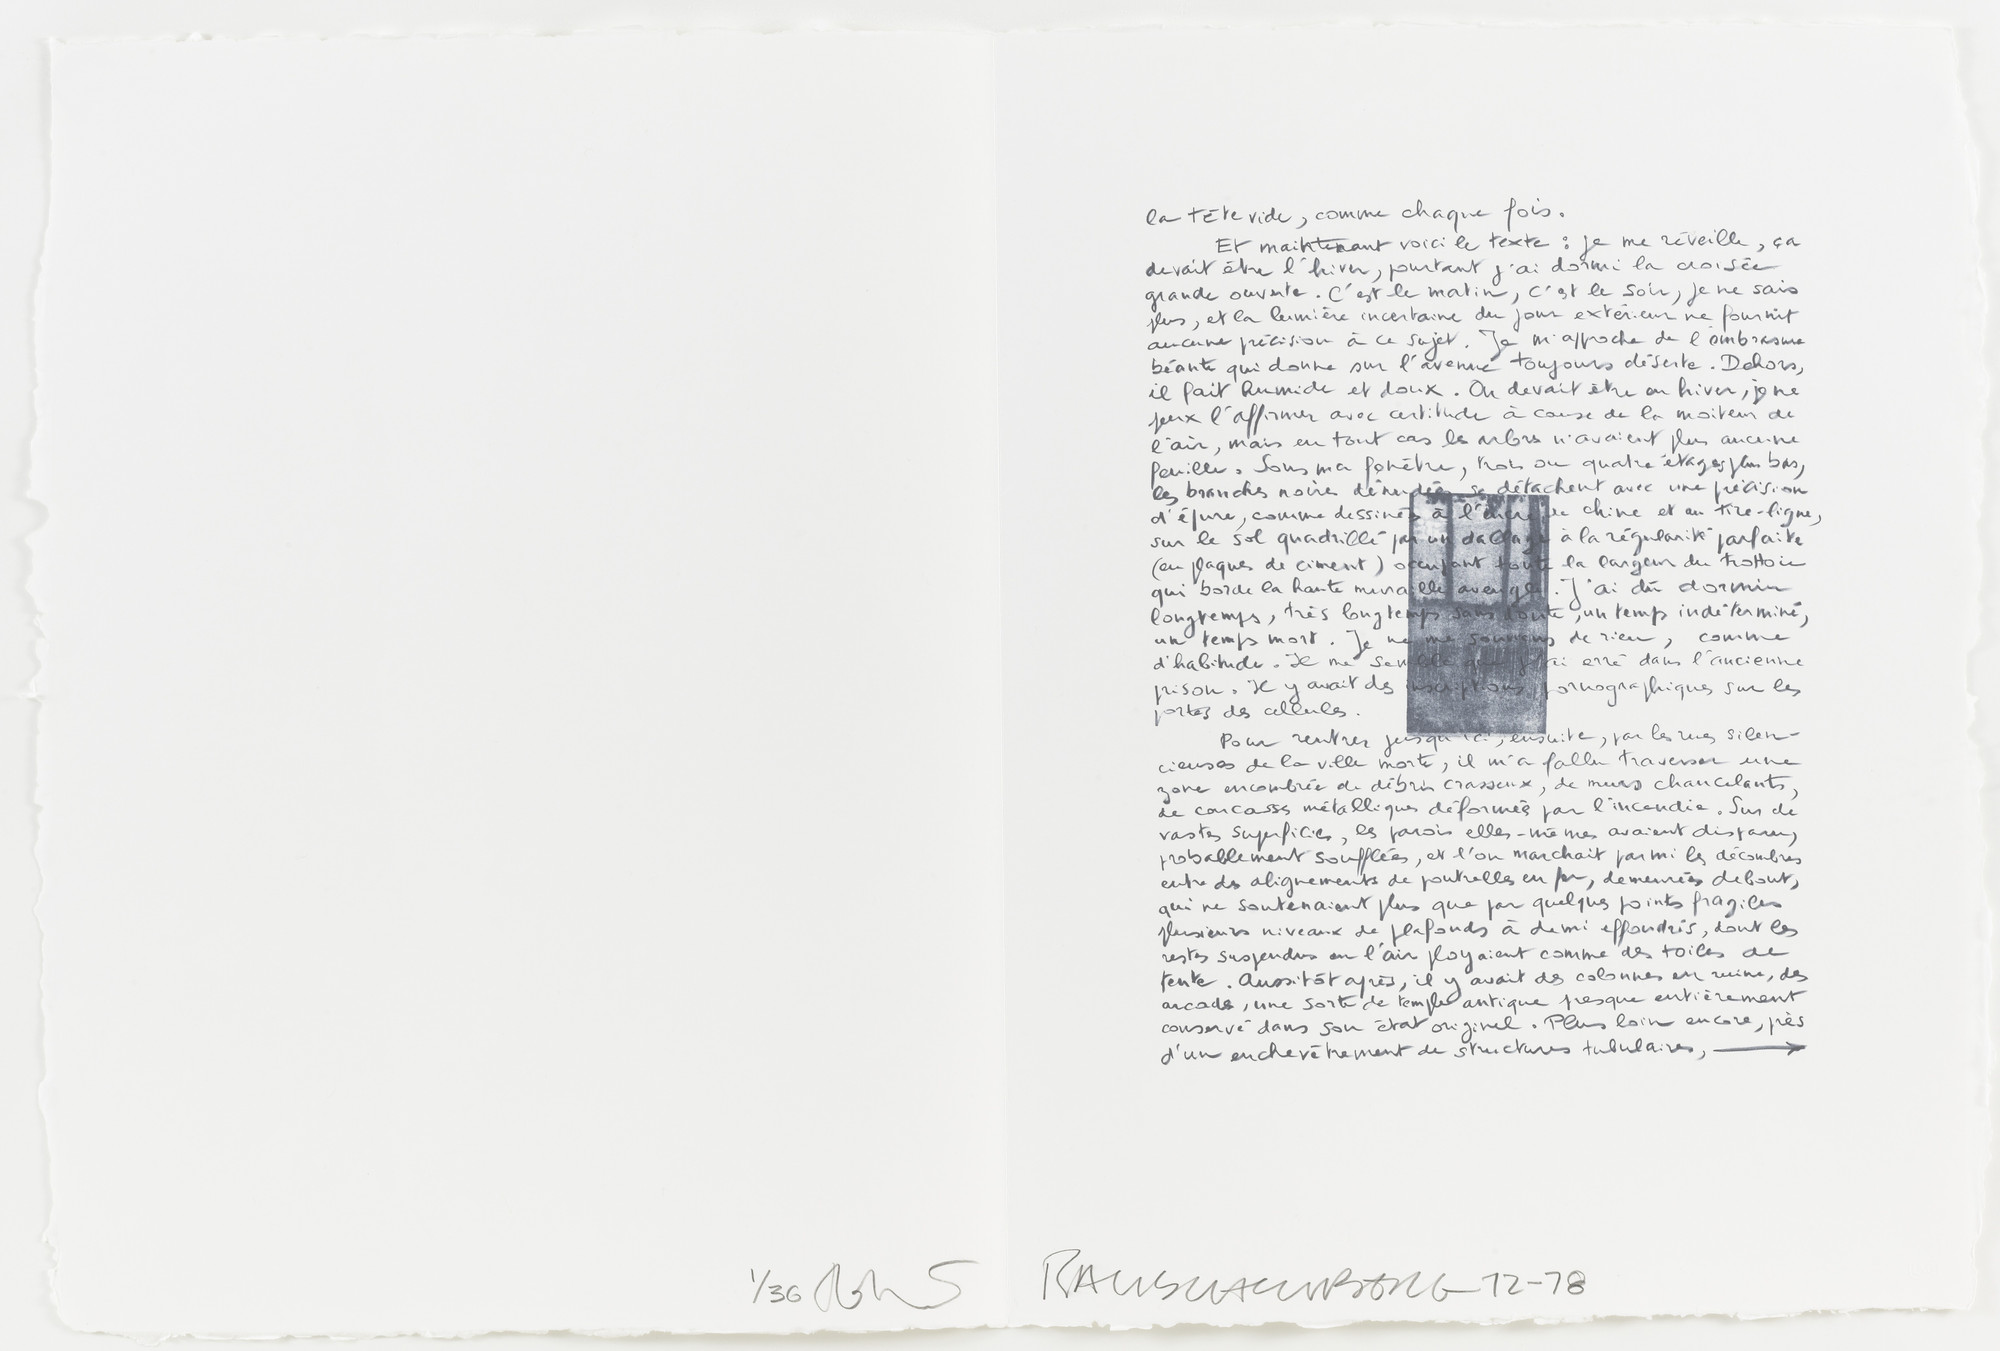 la tête vide, comme chaque fois.
Et maintenant voici le texte : je me réveille, ça
devait être l'hiver, pourtant j'ai dormi la croisée
grande ouverte. C'est le matin, c'est le soir, je ne sais
plus, et la lumière incertaine du jour extérieur ne fournit
aucune précision à ce sujet. Je m'approche de l'embrasure
béante qui donne sur l'avenue toujours déserte. Dehors,
il fait humide et doux. On devait être en hiver, je ne
peux l'affirmer avec certitude à cause de la moiteur de
l'air, mais en tout cas les arbres n'avaient plus aucune
feuille. Sous ma fenêtre, trois ou quatre étages plus bas,
les branches noires dénudées se détachent avec une précision
d'épure, comme dessinées à l'encre de chine et au tire-ligne,
sur le sol quadrillé par un dallage à la régularité parfaite
(en plaques de ciment) occupant toute la largeur du trottoir
qui borde la haute muraille aveugle. J'ai dû dormir
longtemps, très longtemps sans doute, un temps indéterminé,
un temps mort. Je ne me souviens de rien, comme
d'habitude. Il me semble que j'ai erré dans l'ancienne
prison. Il y avait des inscriptions pornographiques sur les
portes des cellules.
Pour rentrer jusqu'ici, ensuite, par les rues silen-
cieuses de la ville morte, il m'a fallu traverser une
zone encombrée de débris crasseux, de murs chancelants,
de carcasses métalliques déformées par l'incendie. Sur de
vastes superficies, les parois elles-mêmes avaient disparu,
probablement soufflées, et l'on marchait parmi les décombres
entre des alignements de poutrelles en fer, demeurées debout,
qui ne soutenaient plus que par quelques points fragiles
plusieurs niveaux de plafonds à demi effondrés, dont les
restes suspendus en l'air ployaient comme des toiles de
tente. Aussitôt après, il y avait des colonnes en ruine, des
arcades, une sorte de temple antique presque entièrement
conservé dans son état originel. Plus loin encore, près
d'un enchevêtrement de structures tubulaires, →
1/36 RAUSCHENBERG 72-78